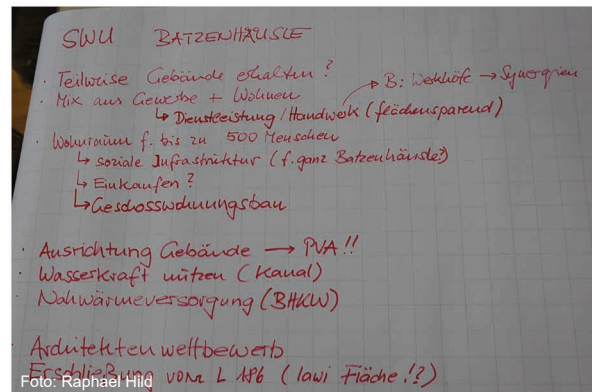 SWU BATZENHÄUSLE
· Teilweise Gebäude erhalten?
· Mix aus Gewerbe + Wohnen
→ B: Werkhöfe → Synergien
↳ Dienstleistung/Handwerk (flächensparend)
· Wohnraum f. bis zu 500 Menschen
↳ soziale Infrastruktur (f. ganz Batzenhäusle?)
↳ Einkaufen?
↳ Geschosswohnungsbau
· Ausrichtung Gebäude → PVA!!
· Wasserkraft nutzen (Kanal)
· Nahwärmeversorgung (BHKW)
· Architektenwettbewerb
Erschließung von L 186 (lawi Fläche!?)
Foto: Raphael Hild